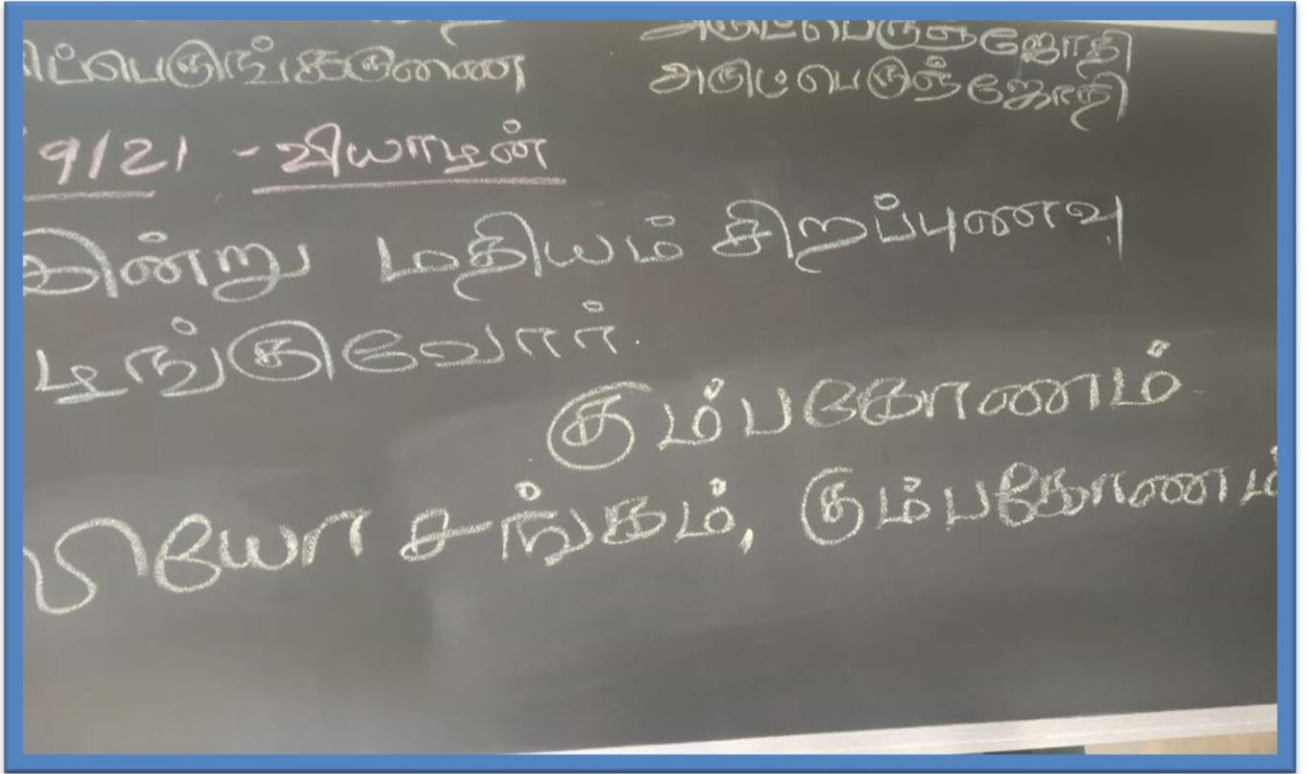 ட்பெருங்கருணை அருட்பெருஞ்ஜோதி
அருட்பெருஞ்ஜோதி
9/21 - வியாழன்
இன்று மதியம் சிறப்புணவு
ழங்குவோர்.
கும்பகோணம்
யோ சங்கம், கும்பகோணம்